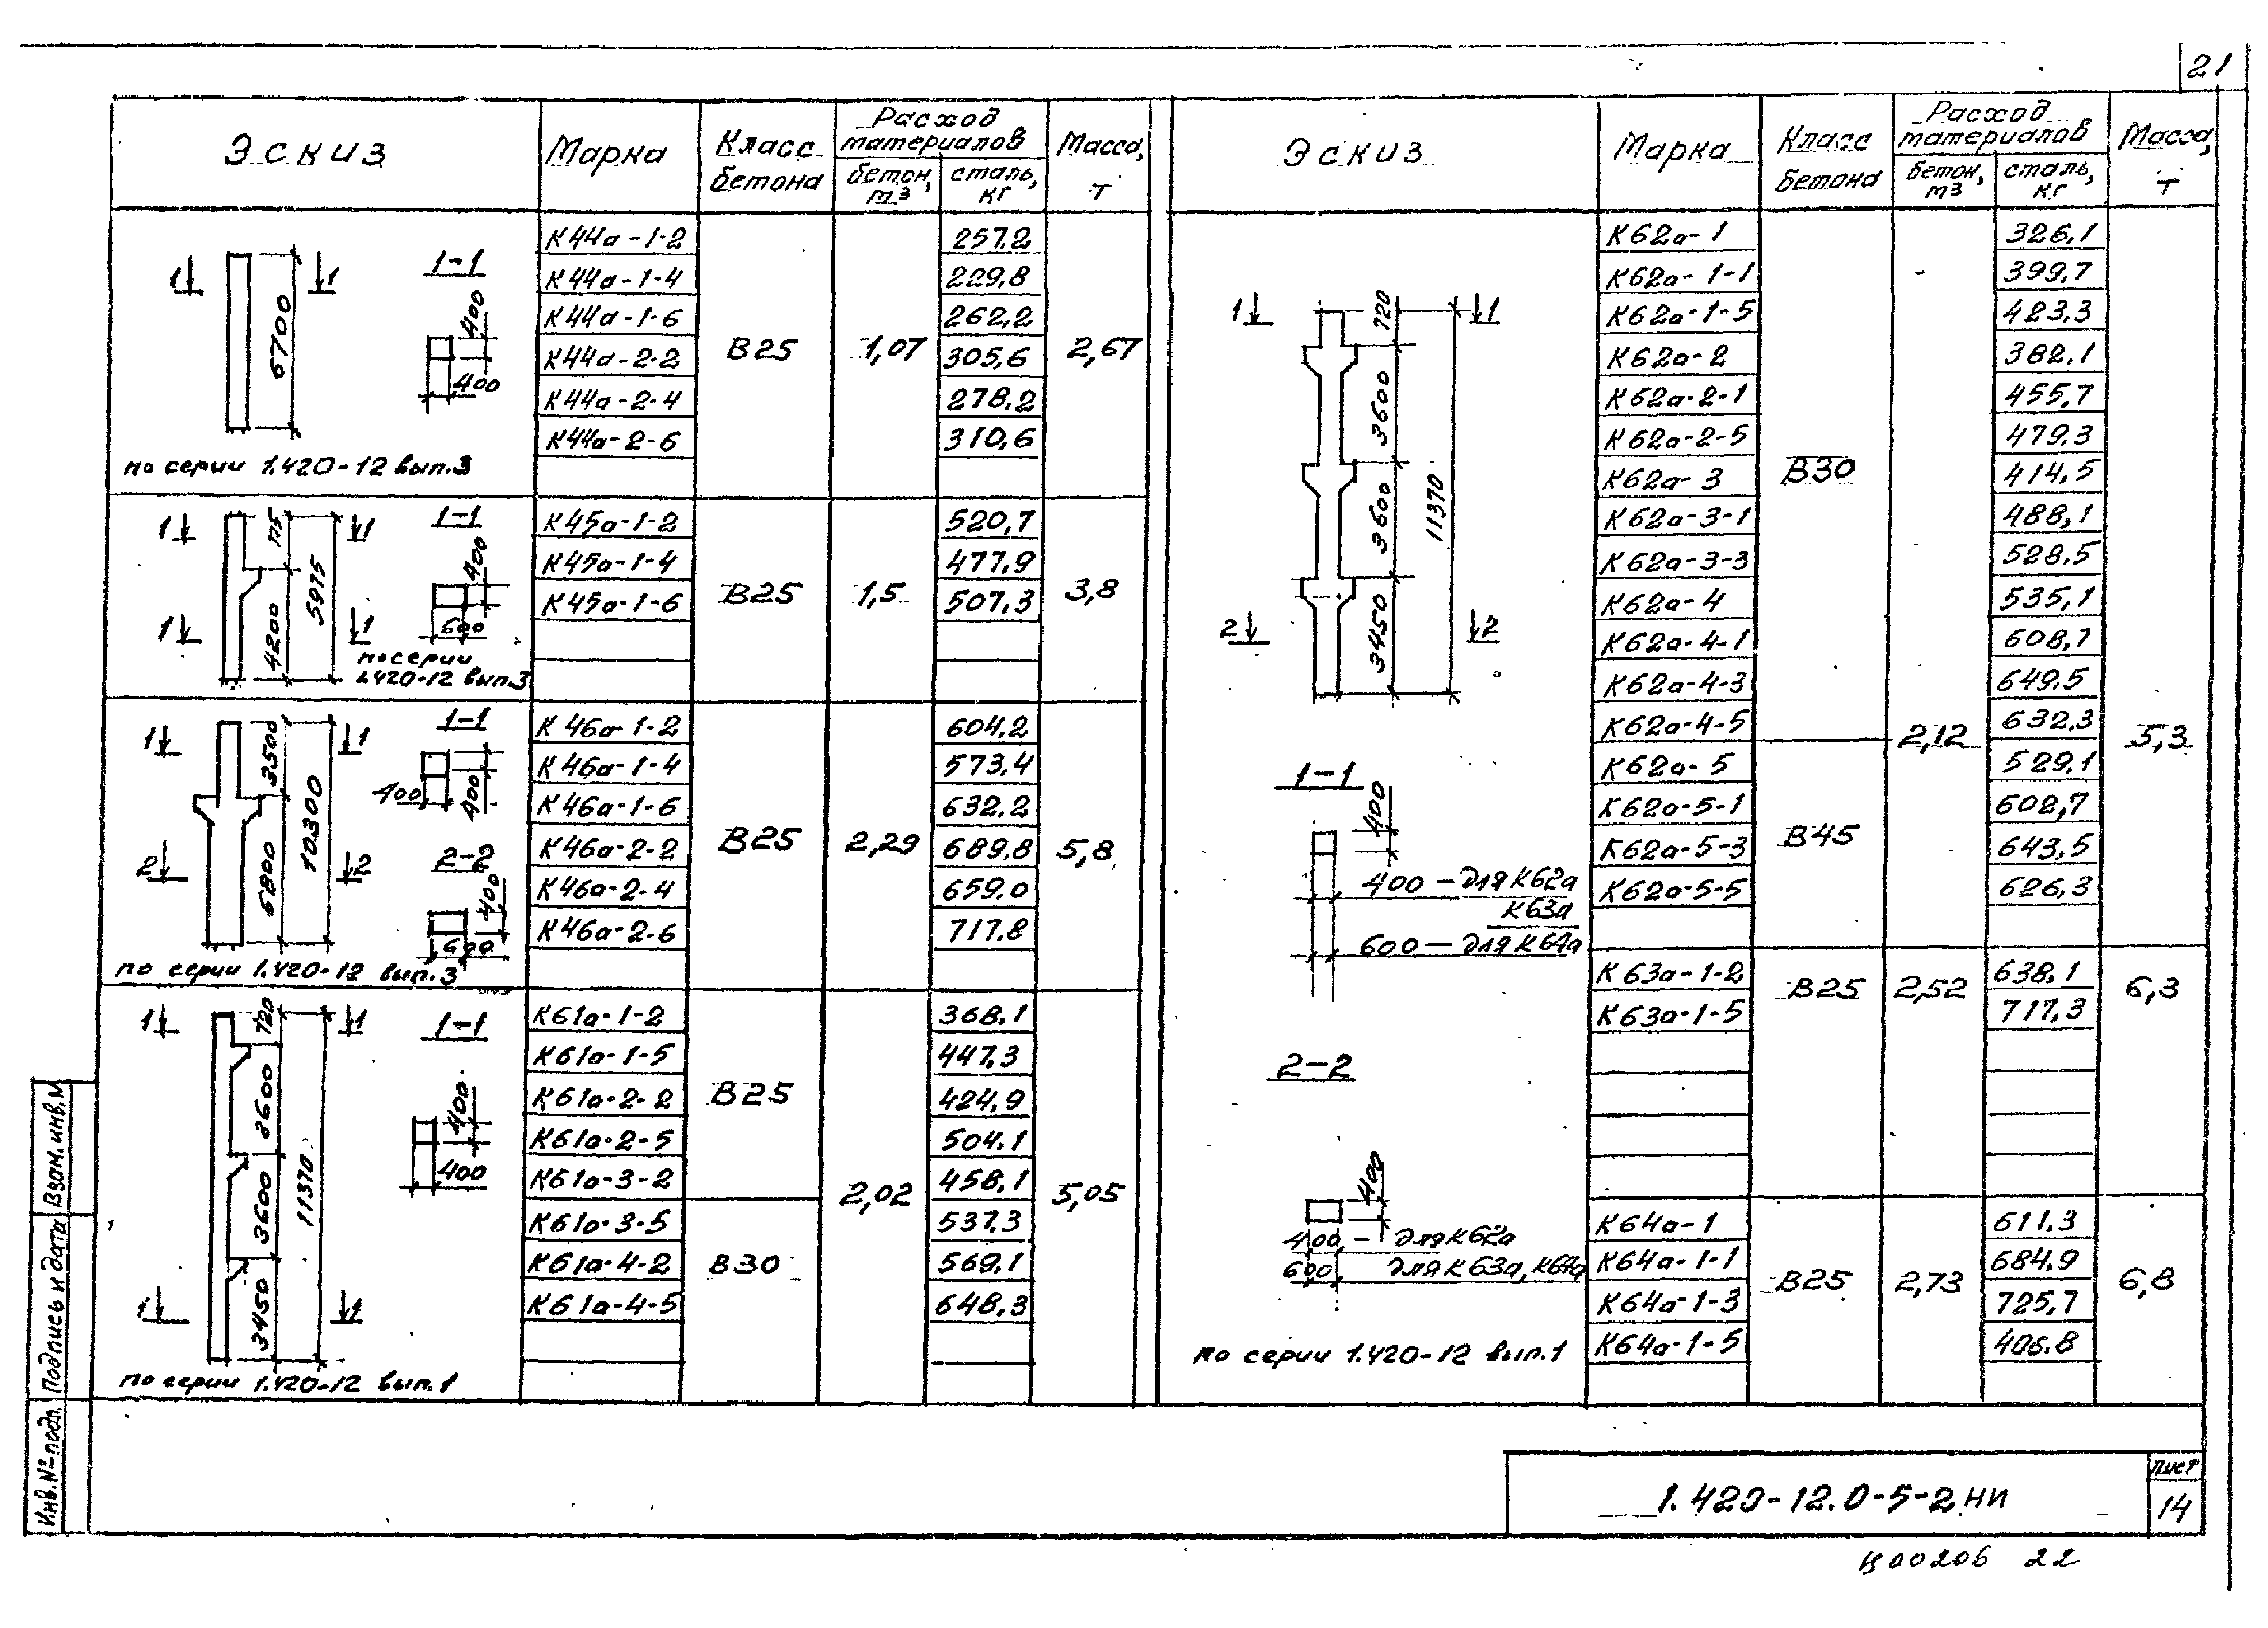 21
Эскиз
Марка
Класс бетона
Расход материалов
бетон, м3
сталь, кг
Масса, т
1 1
6700
1-1
400
400
по серии 1.420-12 вып.3
К44а-1-2 257.2
К44а-1-4 229,8
К44а-1-6 262,2
К44а-2-2 305,6
К44а-2-4 278.2
К44а-2-6 310,6
В25 1,07 2,67
1 1
775
5975
4200
1 1
1-1
400
600
по серии
1.420-12 вып.3
К45а-1-2 520,7
К45а-1-4 477,9
К45а-1-6 507,3
В25 1,5 3,8
1 1
3500
10300
6800
2 2
1-1
400
400
2-2
400
600
по серии 1.420-12 вып.3
К46а-1-2 604.2
К46а-1-4 573,4
К46а-1-6 632.2
К46а-2-2 689,8
К46а-2-4 659.0
К46а-2-6 717.8
В25 2,29 5,8
1 1
720
3600
3600
3450
11370
1 1
1-1
400
400
по серии 1.420-12 вып.1
К61а-1-2 368.1
К61а-1-5 447.3
К61а-2-2 424,9
К61а-2-5 504.1
К61а-3-2 458,1
К61а-3-5 537.3
К61а-4-2 569,1
К61а-4-5 648,3
В25
В30
2,02 5,05
Эскиз
Марка
Класс бетона
Расход материалов
бетон, м3
сталь, кг
Масса, т
1 1
720
3600
3600
3450
11370
2 2
1-1
400
400 - для К62а
К63а
600 - для К64а
2-2
400
400 - для К62а
600 для К63а, К64а
по серии 1.420-12 вып.1
К62а-1 326,1
К62а-1-1 399,7
К62а-1-5 423.3
К62а-2 382.1
К62а-2-1 455,7
К62а-2-5 479.3
К62а-3 414,5
К62а-3-1 488,1
К62а-3-3 528.5
К62а-4 535,1
К62а-4-1 608,7
К62а-4-3 649.5
К62а-4-5 632,3
К62а-5 529.1
К62а-5-1 602,7
К62а-5-3 643,5
К62а-5-5 626,3
В30
В45
2,12 5,3
К63а-1-2 638,1
К63а-1-5 717,3
В25 2,52 6,3
К64а-1 611,3
К64а-1-1 684,9
К64а-1-3 725,7
К64а-1-5 406.8
В25 2,73 6,8
Взам. инв.№
Подпись и дата
Инв.№ подл.
1.420-12.0-5-2НИ
Лист
14
Ц00206 22